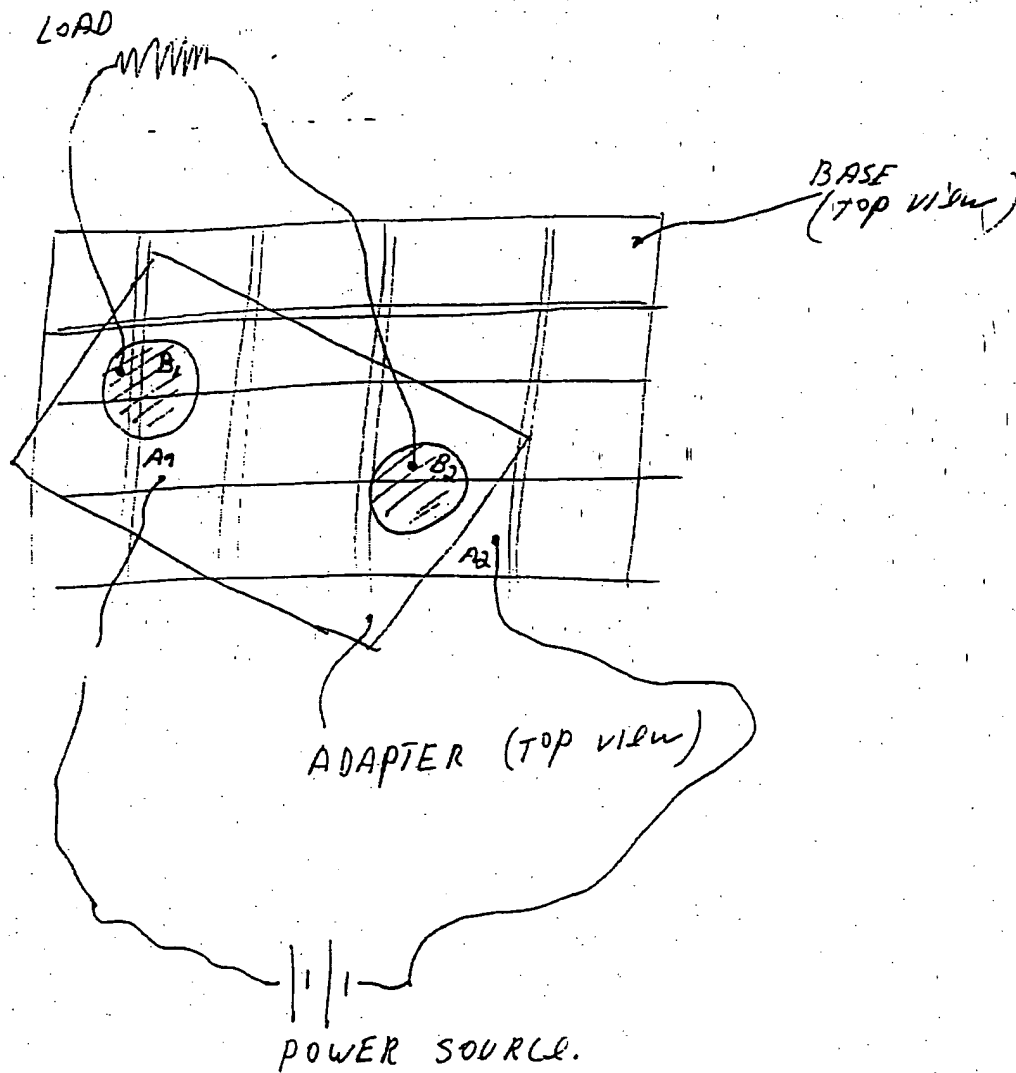 LOAD
BASE
(TOP view)
B1
A1
B2
A2
ADAPTER (TOP view)
POWER SOURCe.